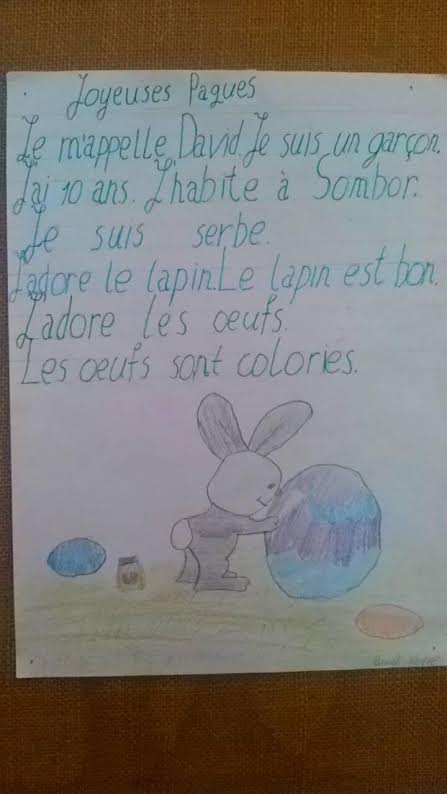 Joyeuses Paques
Je m'appelle David. Je suis un garçon.
J'ai 10 ans. J'habite à Sombor.
Je suis serbe.
J'adore le lapin. Le lapin est bon.
J'adore les œufs.
Les œufs sont colories.